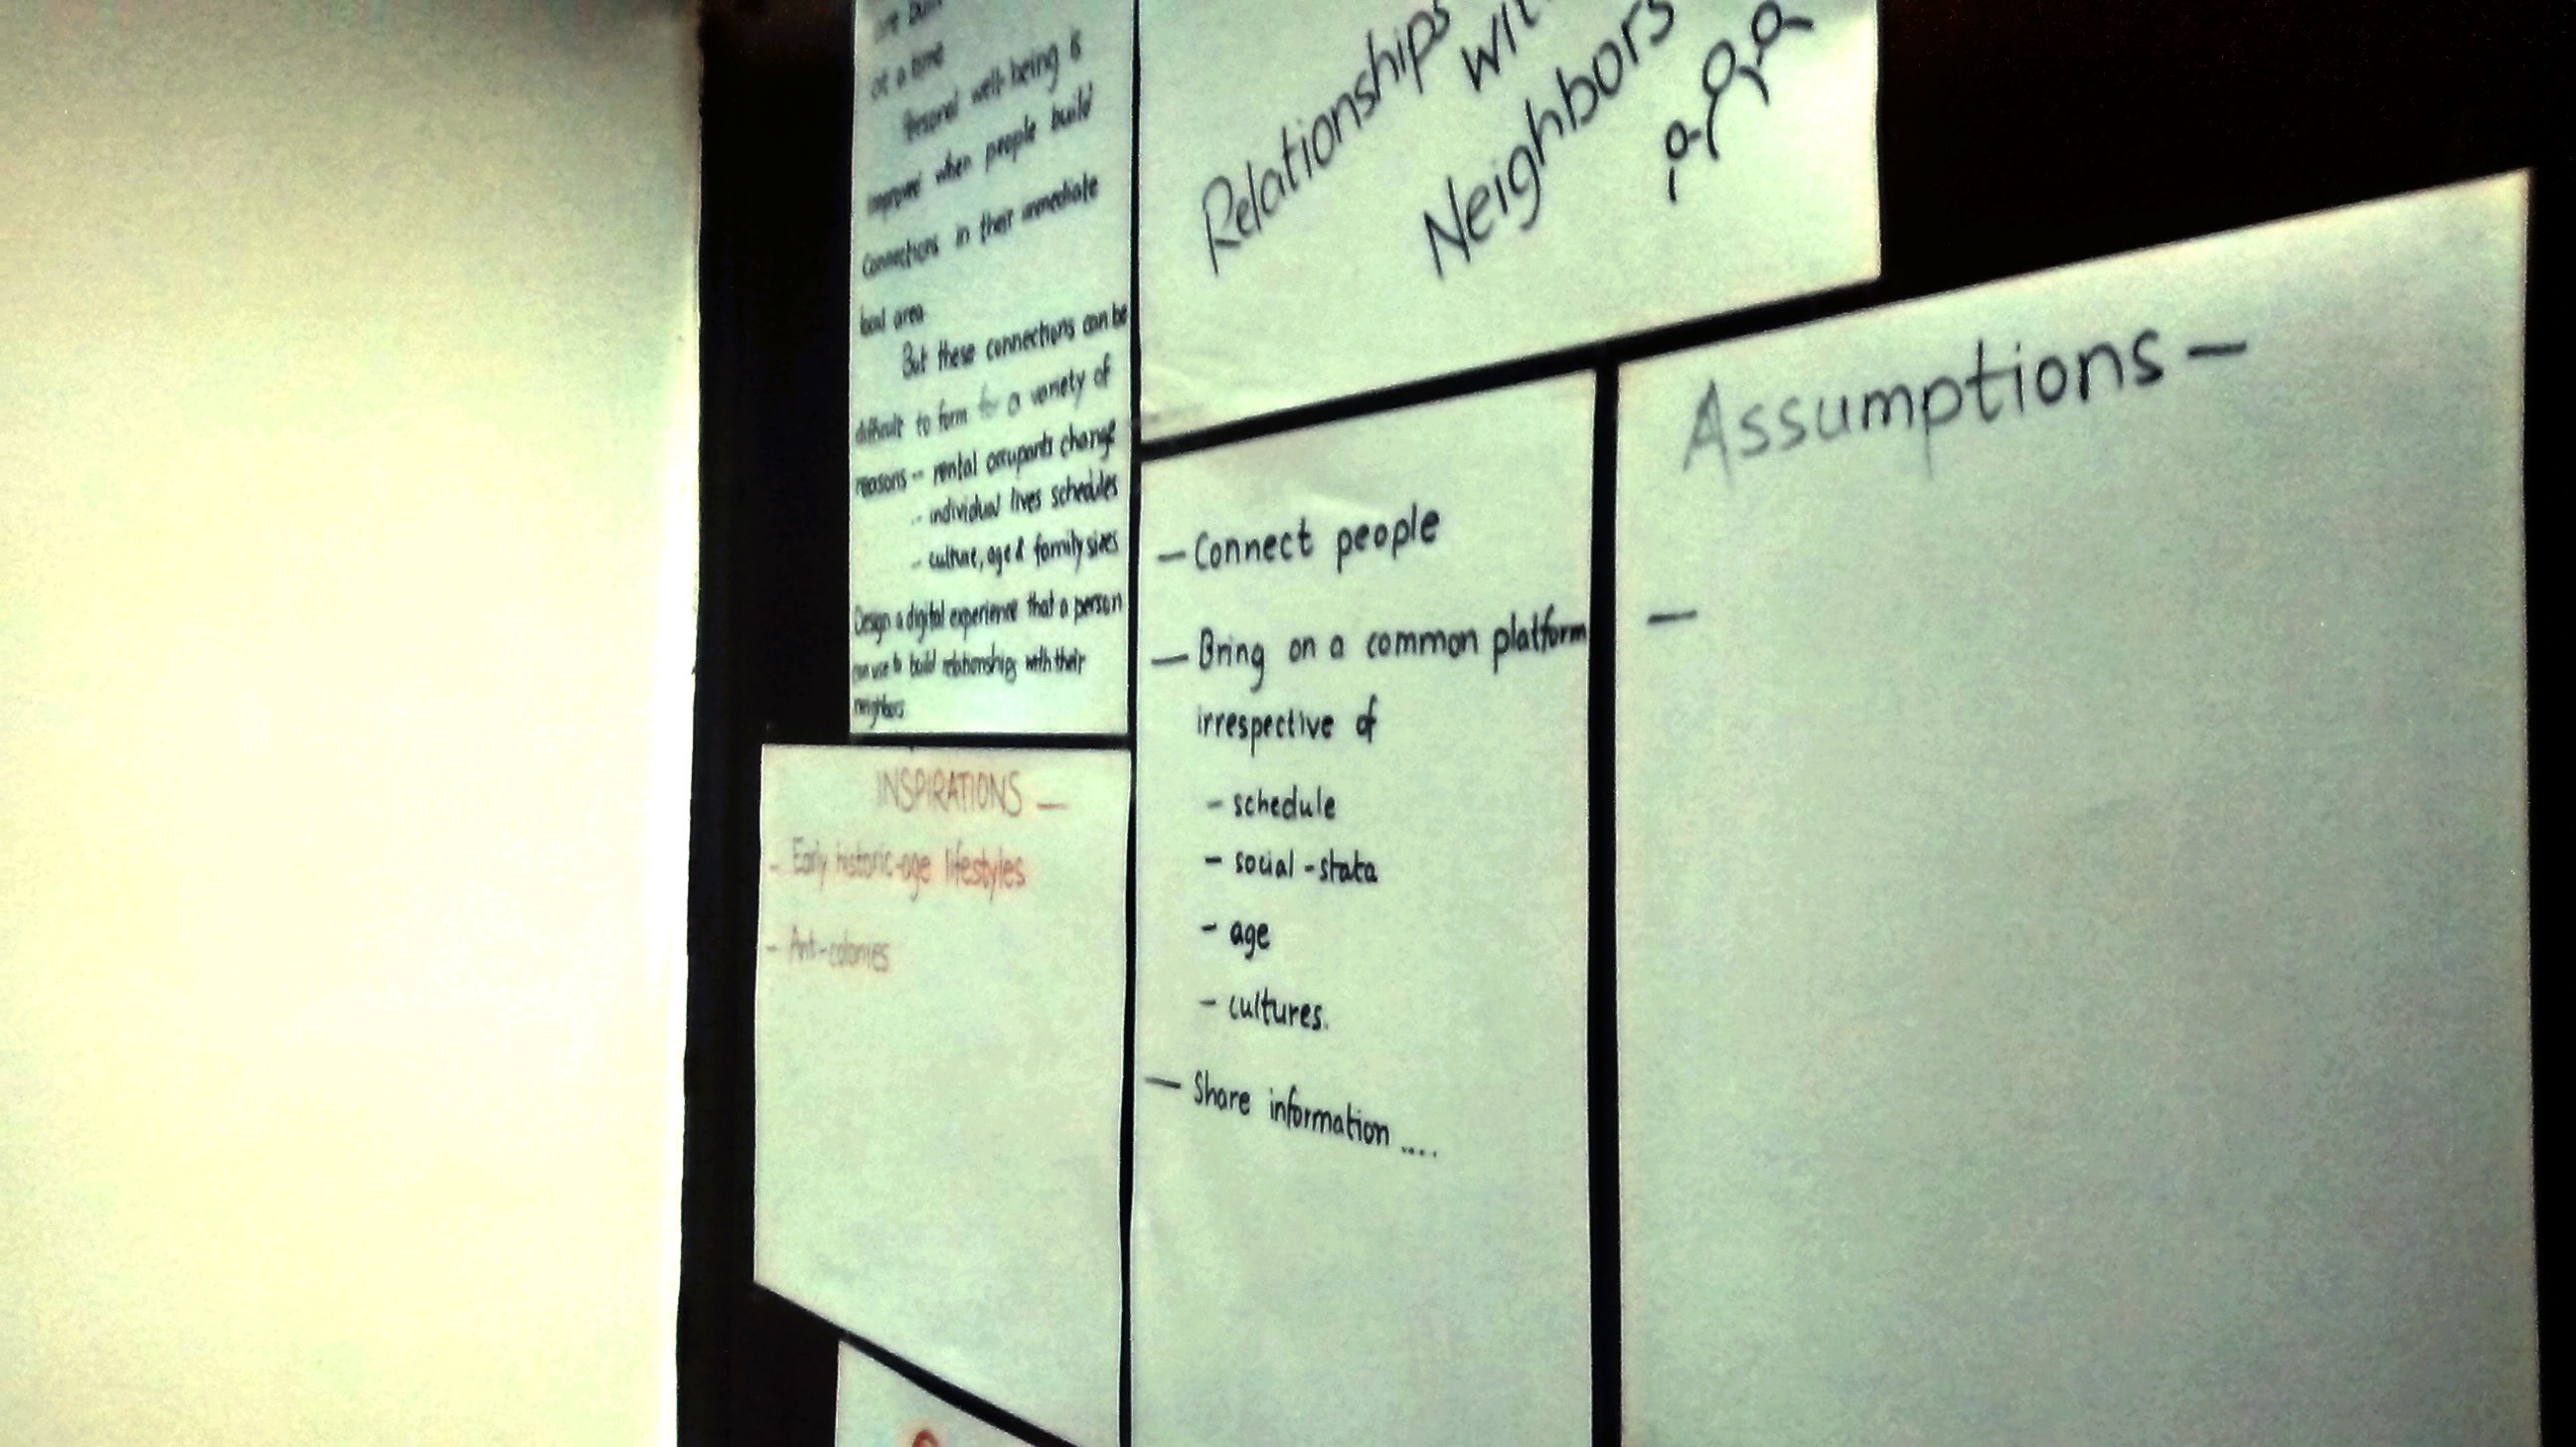 at a time
Personal well-being is
improved when people build
Connections in their immediate
local area
But these connections can be
difficult to form for a variety of
reasons -- rental occupants change
-- individual lives schedules
-- culture, age & family sizes
Design a digital experience that a person
can use to build relationships with their
neighbors
Relationships
with
Neighbors
INSPIRATIONS —
- Early historic-age lifestyles
- Ant-colonies
— Connect people
— Bring on a common platform
irrespective of
- schedule
- social-stata
- age
- cultures.
— Share information ....
Assumptions —
—